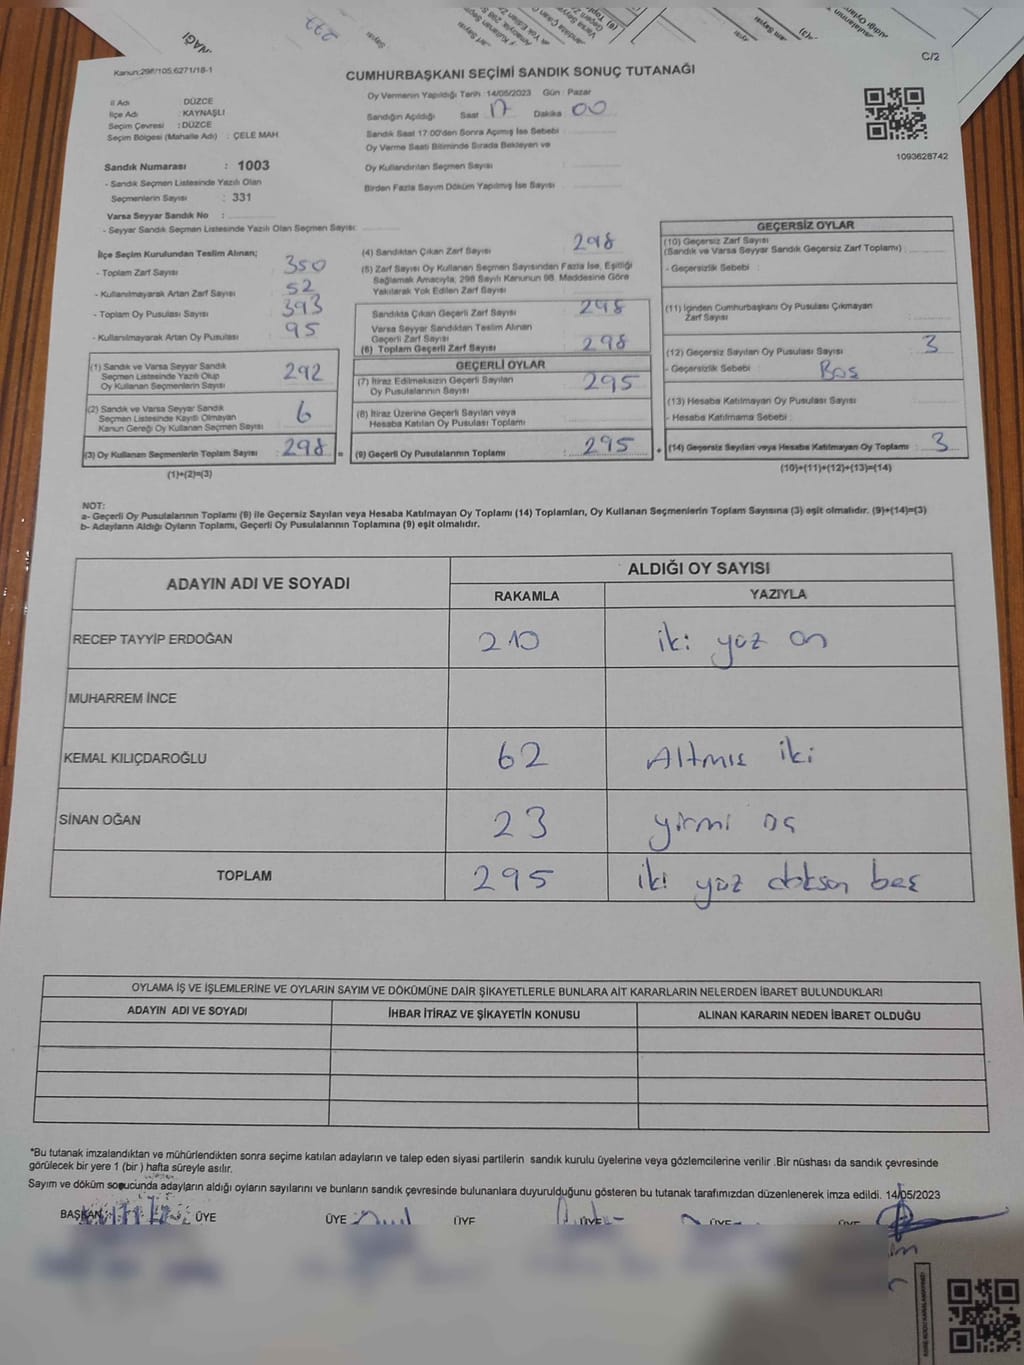 C/2
Kanun;298/105,6271/18-1
CUMHURBAŞKANI SEÇİMİ SANDIK SONUÇ TUTANAĞI
İl Adı DÜZCE
İlçe Adı : KAYNAŞLI
Seçim Çevresi : DÜZCE
Seçim Bölgesi (Mahalle Adı) : ÇELE MAH.
Oy Vermenin Yapıldığı Tarih :14/05/2023 Gün : Pazar
Sandığın Açıldığı Saat 17 Dakika 00
Sandık Saat 17:00'den Sonra Açımış İse Sebebi :
Oy Verme Saati Bitiminde Sırada Bekleyen ve
Oy Kullandırılan Seçmen Sayısı :
Birden Fazla Sayım Döküm Yapılmış İse Sayısı
1093628742
Sandık Numarası : 1003
- Sandık Seçmen Listesinde Yazılı Olan
Seçmenlerin Sayısı : 331
Varsa Seyyar Sandık No :
- Seyyar Sandık Seçmen Listesinde Yazılı Olan Seçmen Sayısı:
İlçe Seçim Kurulundan Teslim Alınan;
- Toplam Zarf Sayısı : 350
- Kullanılmayarak Artan Zarf Sayısı : 52
- Toplam Oy Pusulası Sayısı : 393
- Kullanılmayarak Artan Oy Pusulası : 95
(1) Sandık ve Varsa Seyyar Sandık
Seçmen Listesinde Yazılı Olup
Oy Kullanan Seçmenlerin Sayısı : 292
(2) Sandık ve Varsa Seyyar Sandık
Seçmen Listesinde Kayıtlı Olmayan
Kanun Gereği Oy Kullanan Seçmen Sayısı : 6
(3) Oy Kullanan Seçmenlerin Toplam Sayısı : 298 =
(1)+(2)=(3)
(4) Sandıktan Çıkan Zarf Sayısı 298
(5) Zarf Sayısı Oy Kullanan Seçmen Sayısından Fazla İse, Eşitliği
Sağlamak Amacıyla; 298 Sayılı Kanunun 98. Maddesine Göre
Yakılarak Yok Edilen Zarf Sayısı :
Sandıkta Çıkan Geçerli Zarf Sayısı : 298
Varsa Seyyar Sandıktan Teslim Alınan
Geçerli Zarf Sayısı :
(6) Toplam Geçerli Zarf Sayısı : 298
GEÇERLİ OYLAR
(7) İtiraz Edilmeksizin Geçerli Sayılan
Oy Pusulalarının Sayısı : 295
(8) İtiraz Üzerine Geçerli Sayılan veya
Hesaba Katılan Oy Pusulası Toplamı :
(9) Geçerli Oy Pusulalarının Toplamı : 295 +
GEÇERSİZ OYLAR
(10) Geçersiz Zarf Sayısı
(Sandık ve Varsa Seyyar Sandık Geçersiz Zarf Toplamı) :
- Geçersizlik Sebebi :
(11) İçinden Cumhurbaşkanı Oy Pusulası Çıkmayan
Zarf Sayısı :
(12) Geçersiz Sayılan Oy Pusulası Sayısı : 3
- Geçersizlik Sebebi : Boş
(13) Hesaba Katılmayan Oy Pusulası Sayısı :
- Hesaba Katılmama Sebebi :
(14) Geçersiz Sayılan veya Hesaba Katılmayan Oy Toplamı : 3
(10)+(11)+(12)+(13)=(14)
NOT:
a- Geçerli Oy Pusulalarının Toplamı (9) ile Geçersiz Sayılan veya Hesaba Katılmayan Oy Toplamı (14) Toplamları, Oy Kullanan Seçmenlerin Toplam Sayısına (3) eşit olmalıdır. (9)+(14)=(3)
b- Adayların Aldığı Oyların Toplamı, Geçerli Oy Pusulalarının Toplamına (9) eşit olmalıdır.
ADAYIN ADI VE SOYADI ALDIĞI OY SAYISI
RAKAMLA YAZIYLA
RECEP TAYYİP ERDOĞAN 210 iki yüz on
MUHARREM İNCE
KEMAL KILIÇDAROĞLU 62 Altmış iki
SİNAN OĞAN 23 yirmi üç
TOPLAM 295 iki yüz doksan beş
OYLAMA İŞ VE İŞLEMLERİNE VE OYLARIN SAYIM VE DÖKÜMÜNE DAİR ŞİKAYETLERLE BUNLARA AİT KARARLARIN NELERDEN İBARET BULUNDUKLARI
ADAYIN ADI VE SOYADI İHBAR İTİRAZ VE ŞİKAYETİN KONUSU ALINAN KARARIN NEDEN İBARET OLDUĞU
*Bu tutanak imzalandıktan ve mühürlendikten sonra seçime katılan adayların ve talep eden siyasi partilerin sandık kurulu üyelerine veya gözlemcilerine verilir .Bir nüshası da sandık çevresinde
görülecek bir yere 1 (bir ) hafta süreyle asılır.
Sayım ve döküm sonucunda adayların aldığı oyların sayılarını ve bunların sandık çevresinde bulunanlara duyurulduğunu gösteren bu tutanak tarafımızdan düzenlenerek imza edildi. 14/05/2023
BAŞKAN ÜYE ÜYE ÜYE ÜYE ÜYE ÜYE